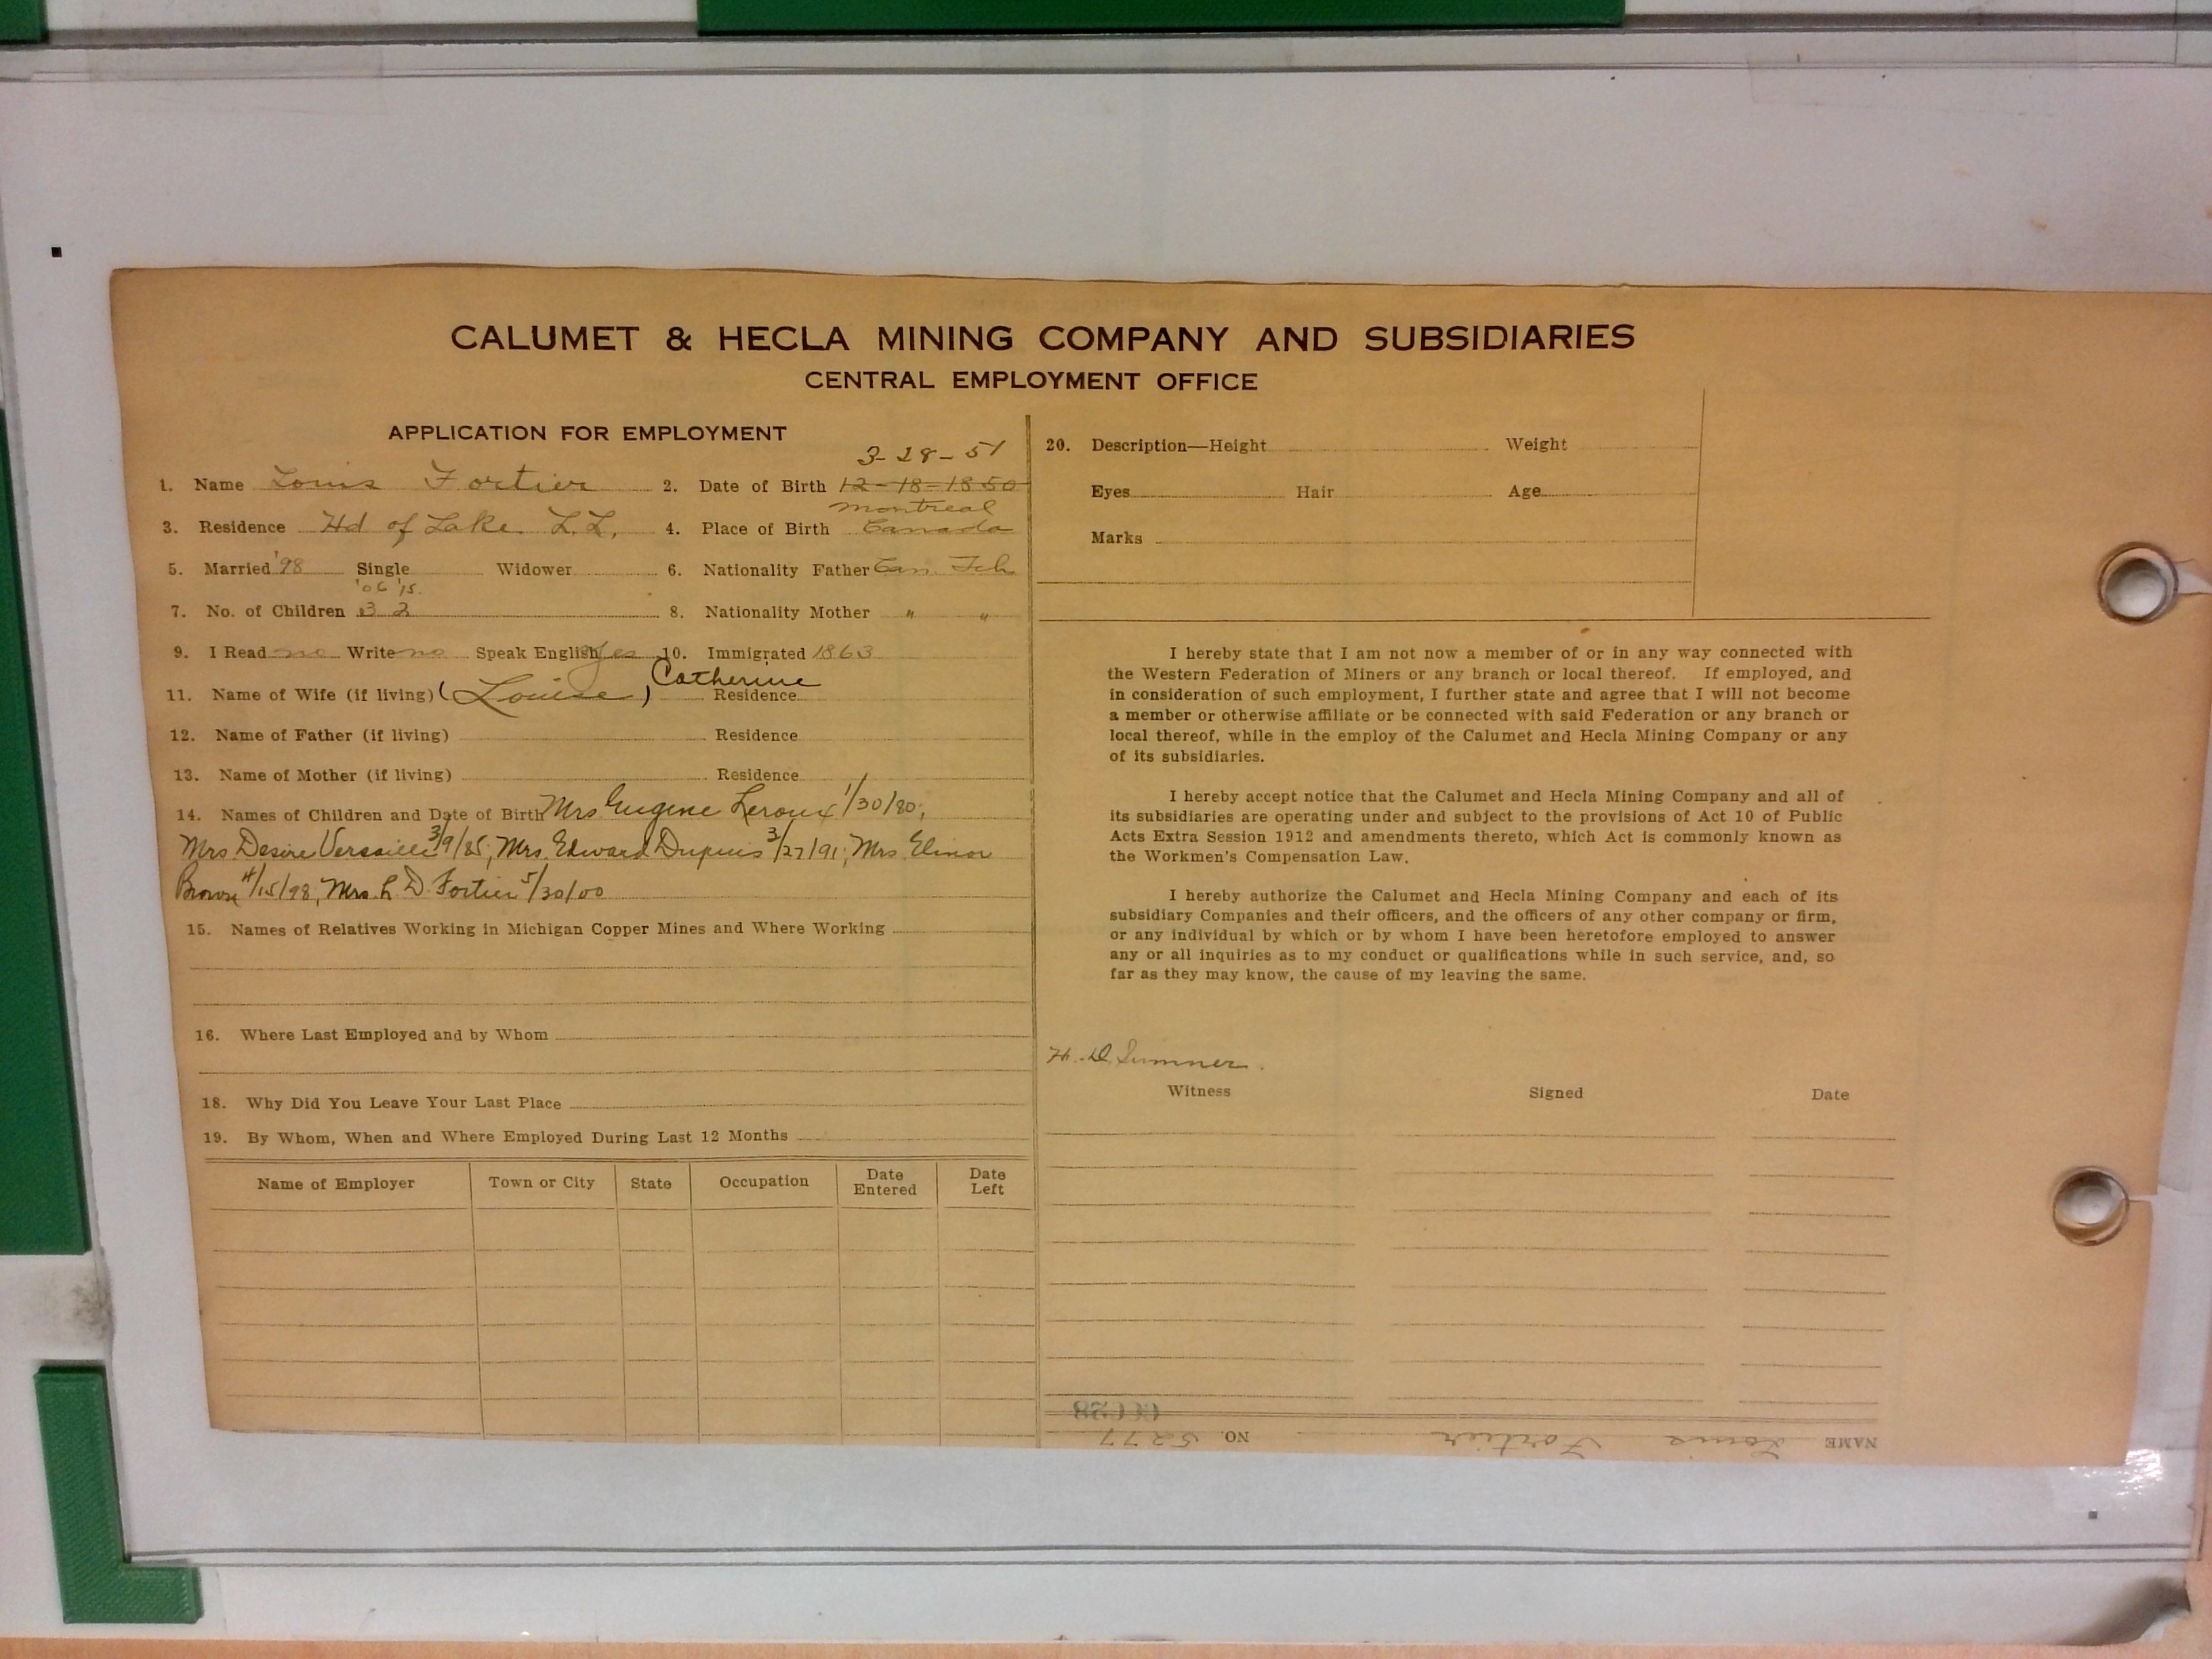 CALUMET & HECLA MINING COMPANY AND SUBSIDIARIES
CENTRAL EMPLOYMENT OFFICE
APPLICATION FOR EMPLOYMENT
3-28-51
1. Name Louis Fortier 2. Date of Birth 12-18-1850
Montreal
3. Residence Hd of Lake L.L. 4. Place of Birth Canada
5. Married '98 Single Widower 6. Nationality Father Can. Fch
'06 '15.
7. No. of Children 3 2 8. Nationality Mother " "
9. I Read no Write no Speak English Yes 10. Immigrated 1863
Catherine
11. Name of Wife (if living) (Louise) Residence
12. Name of Father (if living) Residence
13. Name of Mother (if living) Residence
14. Names of Children and Date of Birth Mrs Eugene Leroux 1/30/80;
Mrs. Desire Versaille 3/9/85; Mrs. Edward Dupuis 3/27/91; Mrs. Elinor
Brown 4/15/98; Mrs. L. D. Fortier 5/30/00
15. Names of Relatives Working in Michigan Copper Mines and Where Working
16. Where Last Employed and by Whom
18. Why Did You Leave Your Last Place
19. By Whom, When and Where Employed During Last 12 Months
Name of Employer Town or City State Occupation Date Entered Date Left
20. Description—Height Weight
Eyes Hair Age
Marks
I hereby state that I am not now a member of or in any way connected with
the Western Federation of Miners or any branch or local thereof. If employed, and
in consideration of such employment, I further state and agree that I will not become
a member or otherwise affiliate or be connected with said Federation or any branch or
local thereof, while in the employ of the Calumet and Hecla Mining Company or any
of its subsidiaries.
I hereby accept notice that the Calumet and Hecla Mining Company and all of
its subsidiaries are operating under and subject to the provisions of Act 10 of Public
Acts Extra Session 1912 and amendments thereto, which Act is commonly known as
the Workmen's Compensation Law.
I hereby authorize the Calumet and Hecla Mining Company and each of its
subsidiary Companies and their officers, and the officers of any other company or firm,
or any individual by which or by whom I have been heretofore employed to answer
any or all inquiries as to my conduct or qualifications while in such service, and, so
far as they may know, the cause of my leaving the same.
H. D. Sumner.
Witness Signed Date
NAME Louis Fortier NO. 5277